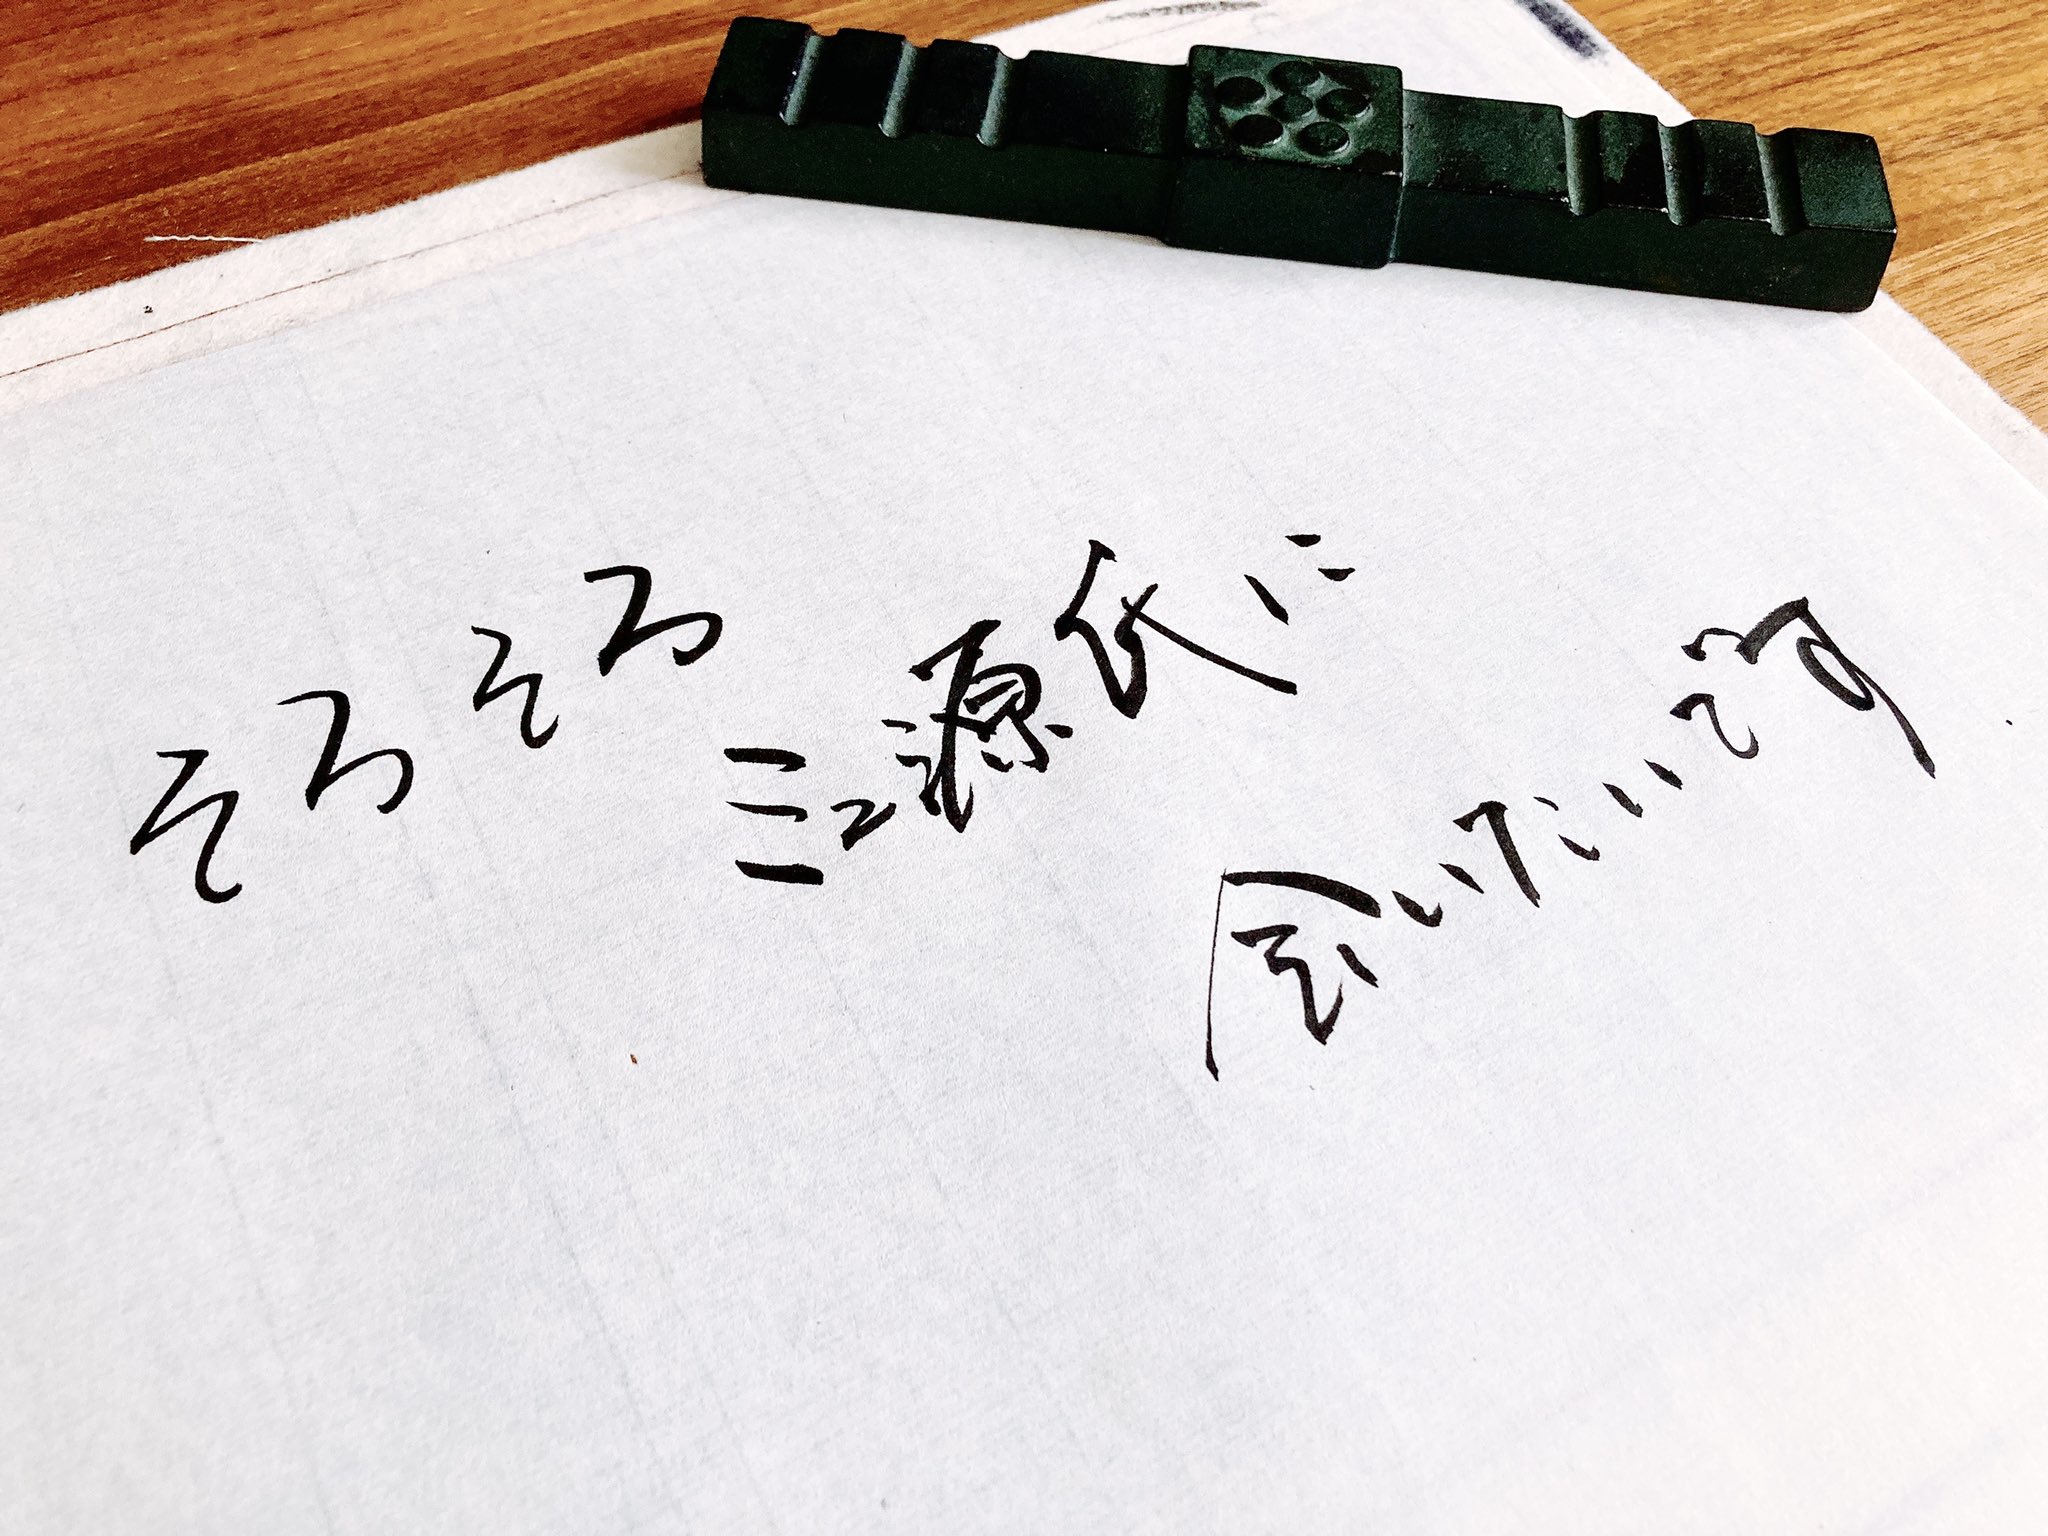 そろそろ
ミュ源氏に
会いたいです